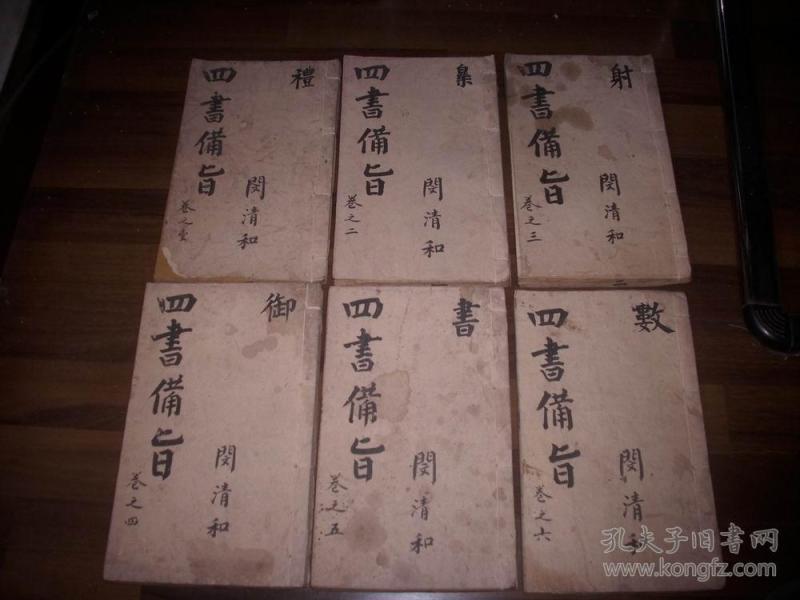 禮
四書備旨
閔清和
卷之壹
四書備旨
閔清和
卷之二
射
四書備旨
閔清和
卷之三
二
御
四書備旨
閔清和
卷之四
書
四書備旨
閔清和
卷之五
數
四書備旨
閔清和
卷之六
孔夫子旧书网
www.kongfz.com